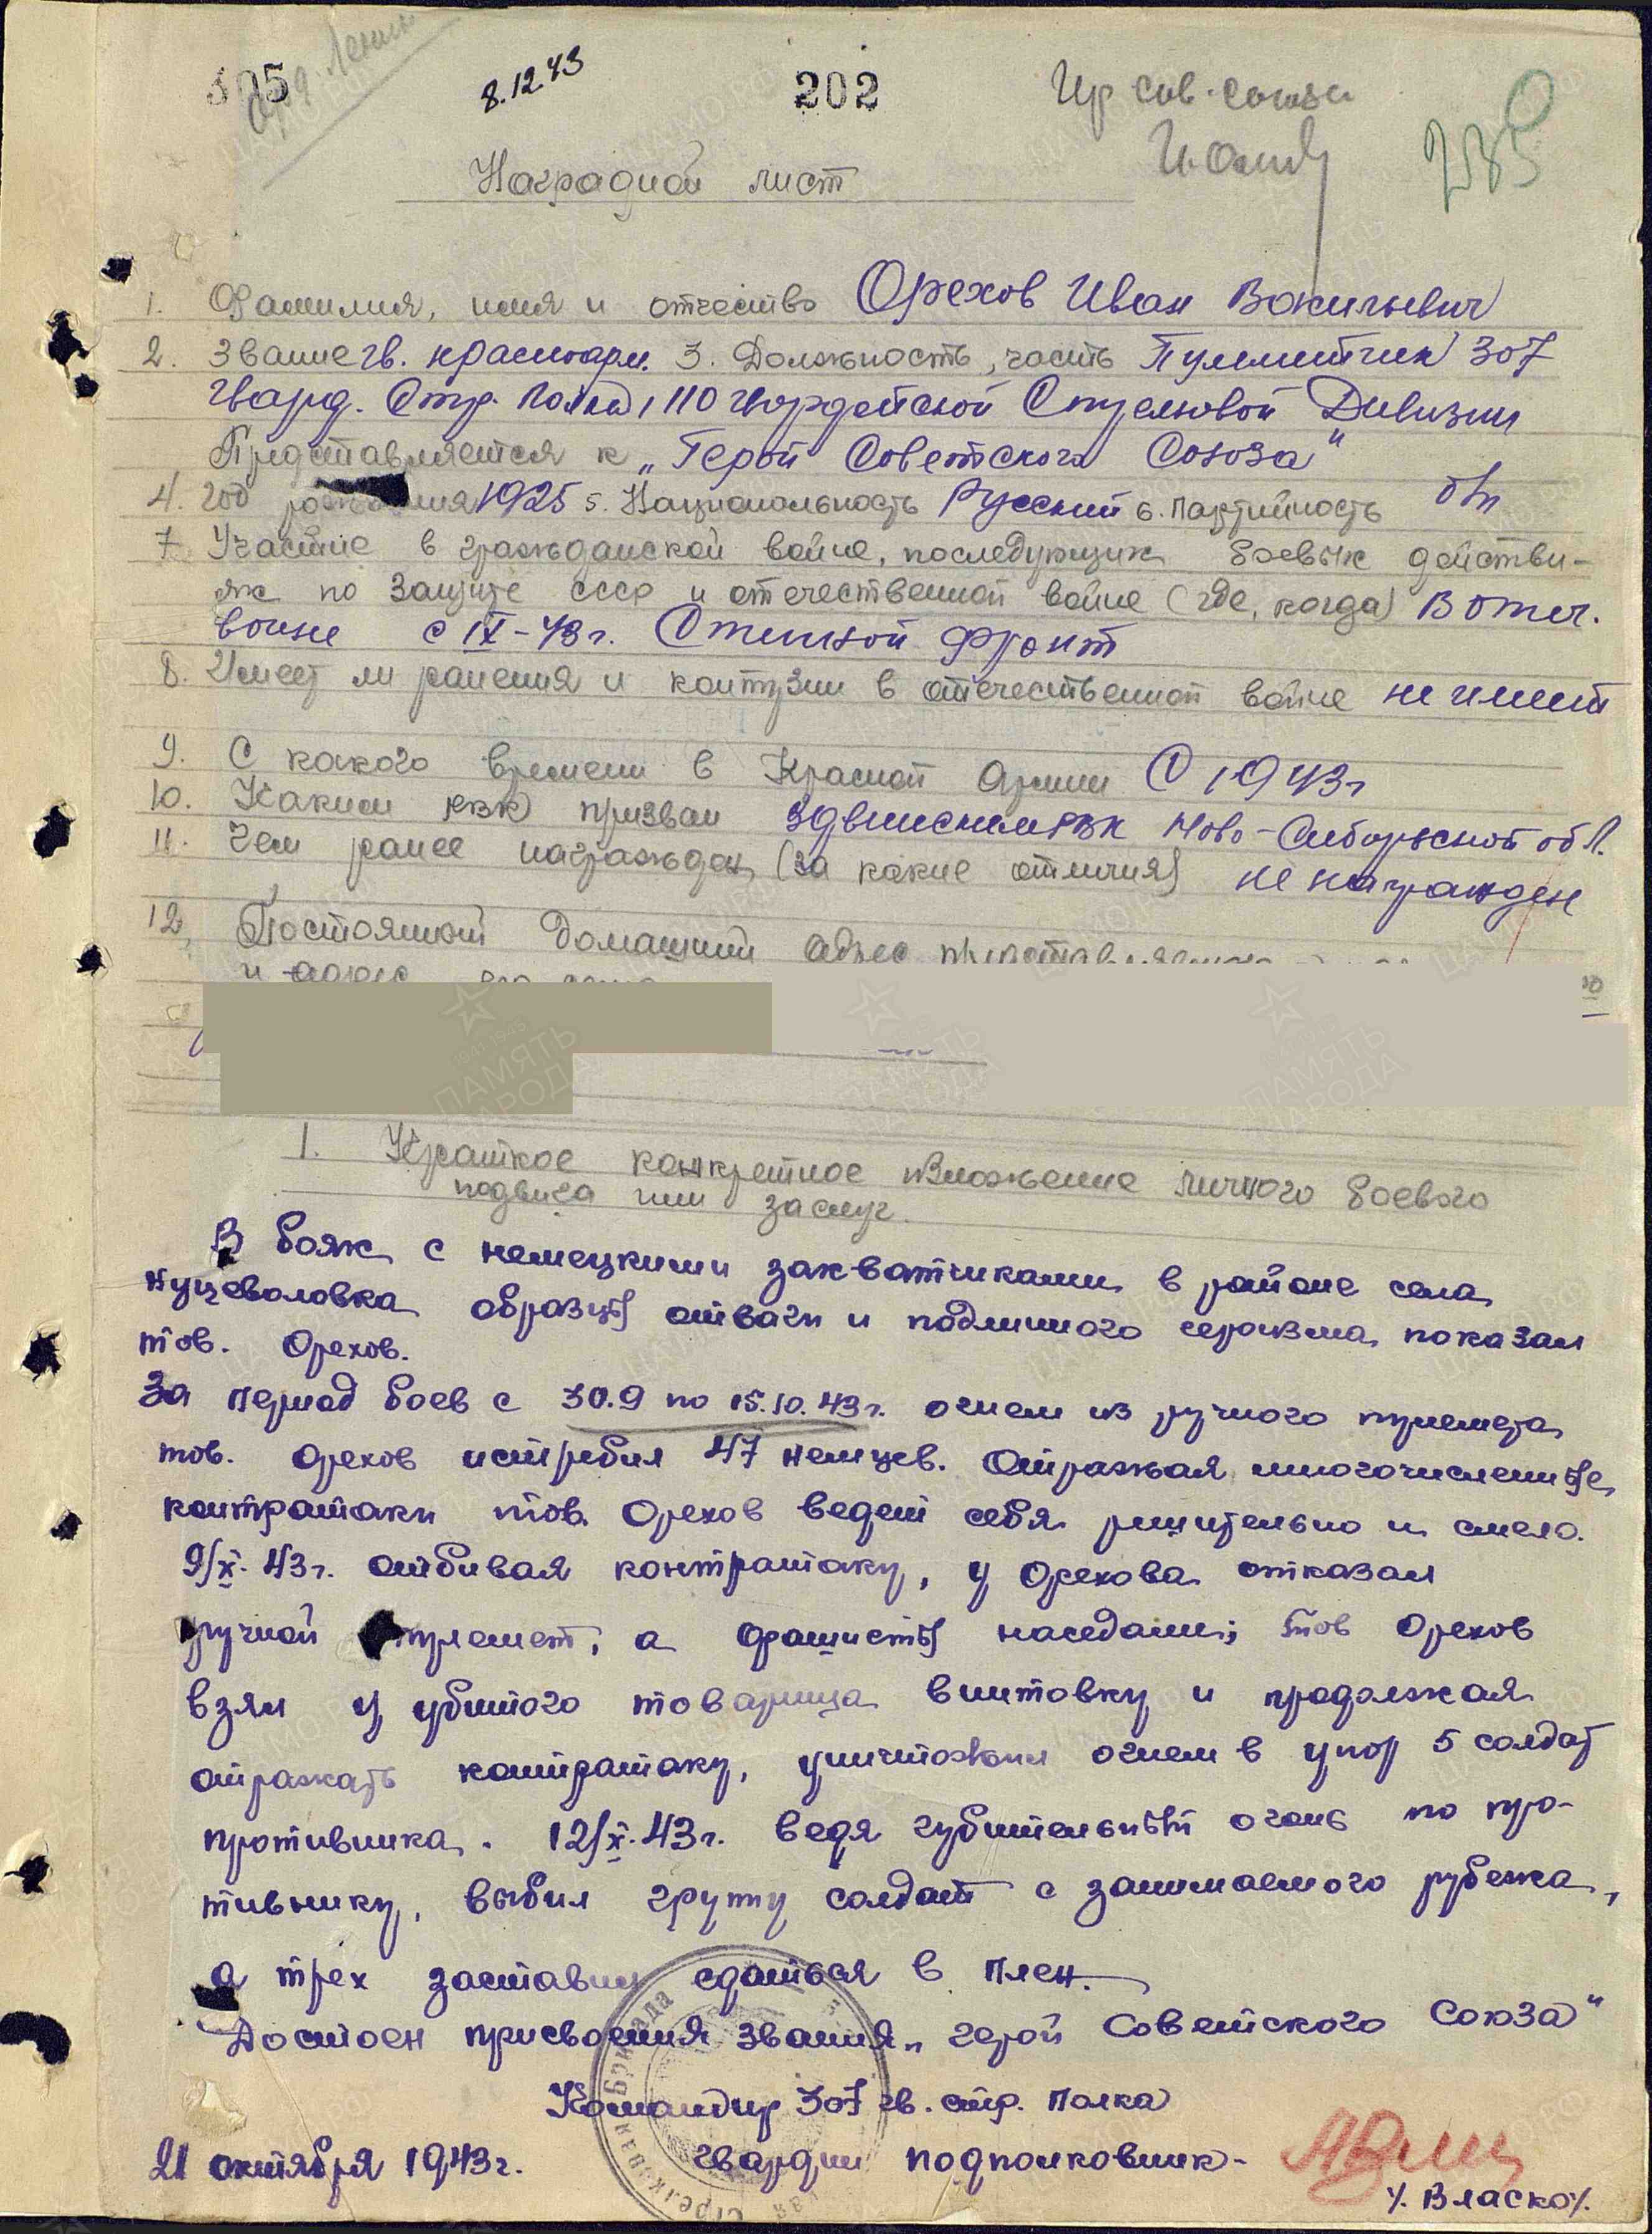 305
8.12.43
202
Гер. Сов. Союза
235
Наградной лист
1. Фамилия, имя и отчество Орехов Иван Васильевич
2. Звание гв. красноарм. 3. Должность, часть Пулеметчик 307
Гвард. Стр. Полка, 110 Гвардейской Стрелковой Дивизии
Представляется к „Герой Советского Союза"
4. Год рождения 1925 5. Национальность Русский 6. Партийность б/п
7. Участие в гражданской войне, последующих боевых действи-
ях по защите СССР и отечественной войне (где, когда) В отеч.
войне с IX-43 г. Степной фронт
8. Имеет ли ранения и контузии в отечественной войне не имеет
9. С какого времени в Красной Армии С 1943 г
10. Каким РВК призван Здвинским РВК Ново-Сибирской обл.
11. Чем ранее награжден (за какие отличия) не награжден
12. Постоянный домашний адрес представляемого
и адрес его семьи
1. Краткое конкретное изложение личного боевого
подвига или заслуг.
В боях с немецкими захватчиками в районе села
Куцеволовка образцы отваги и подлинного героизма показал
тов. Орехов.
За период боев с 30.9 по 15.10.43 г. огнем из ручного пулемета
тов. Орехов истребил 47 немцев. Отражая многочисленные
контратаки тов. Орехов ведет себя решительно и смело.
9/X-43 г. отбивая контратаку, у Орехова отказал
ручной пулемет, а фашисты наседали; тов Орехов
взял у убитого товарища винтовку и продолжая
отражать контратаку, уничтожил огнем в упор 5 солдат
противника. 12/X-43 г. ведя губительный огонь по про-
тивнику, выбил группу солдат с занимаемого рубежа,
а трех заставил сдаться в плен.
Достоен присвоения звания „Герой Советского Союза"
Командир 307 гв. стр. полка
гвардии подполковник -
21 октября 1943 г.
/. Власко/.